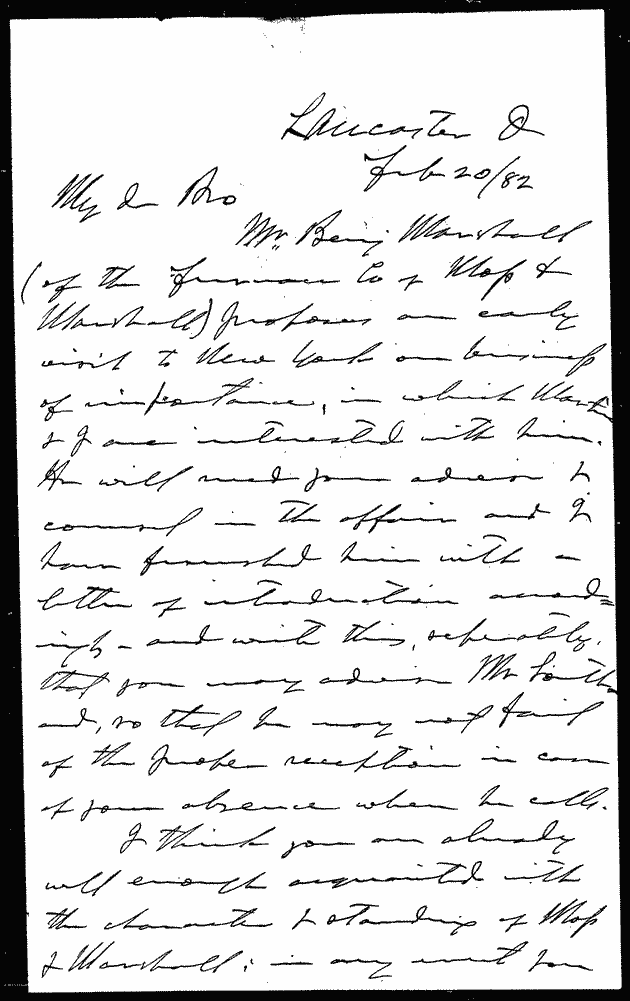 Lancaster O
Feb 20/82
My dr Bro
Mr. Benj Marshall
(of the Furnace Co of Moss &
Marshall) proposes an early
visit to New York on business
of importance, in which
& I are interested with him.
He will need your advice &
counsel in the affair and I
have furnished him with a
letter of introduction accord=
ingly - and write this, seperately,
that you may advise Mr
and, so that he may not fail
of the proper reception in case
of your absence when he calls.
I think you are already
well enough acquainted with
the character & standing of Moss
& Marshall; in any event you